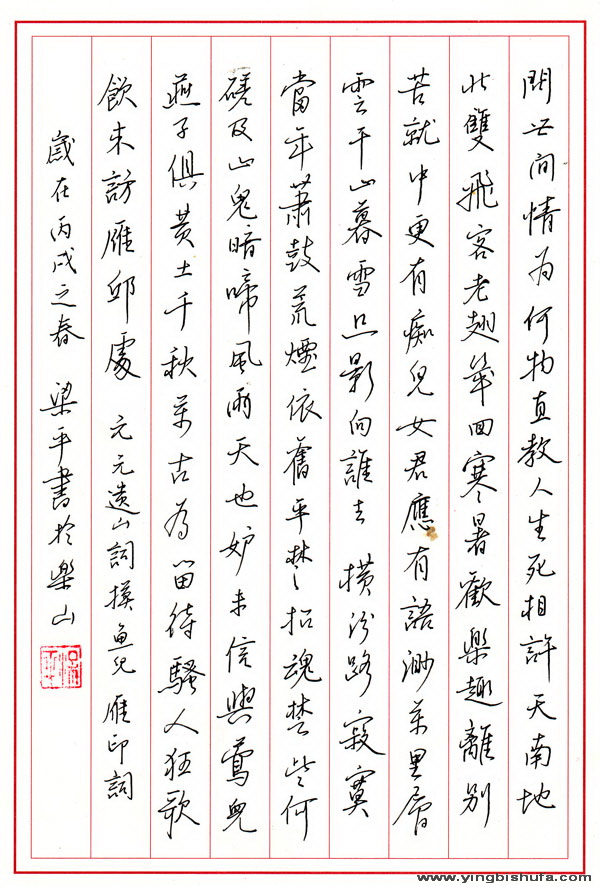 問世間情為何物直教人生死相許天南地
北雙飛客老翅幾回寒暑歡樂趣離別
苦就中更有癡兒女君應有語渺萬里層
雲千山暮雪只影向誰去 橫汾路寂寞
當年蕭鼓荒煙依舊平楚招魂楚些何
嗟及山鬼暗啼風雨天也妒未信與鶯兒
燕子俱黃土千秋萬古為留待騷人狂歌
飲來訪雁邱處 元元遺山詞摸魚兒雁邱詞
歲在丙戌之春 梁平書於樂山
www.yingbishufa.com